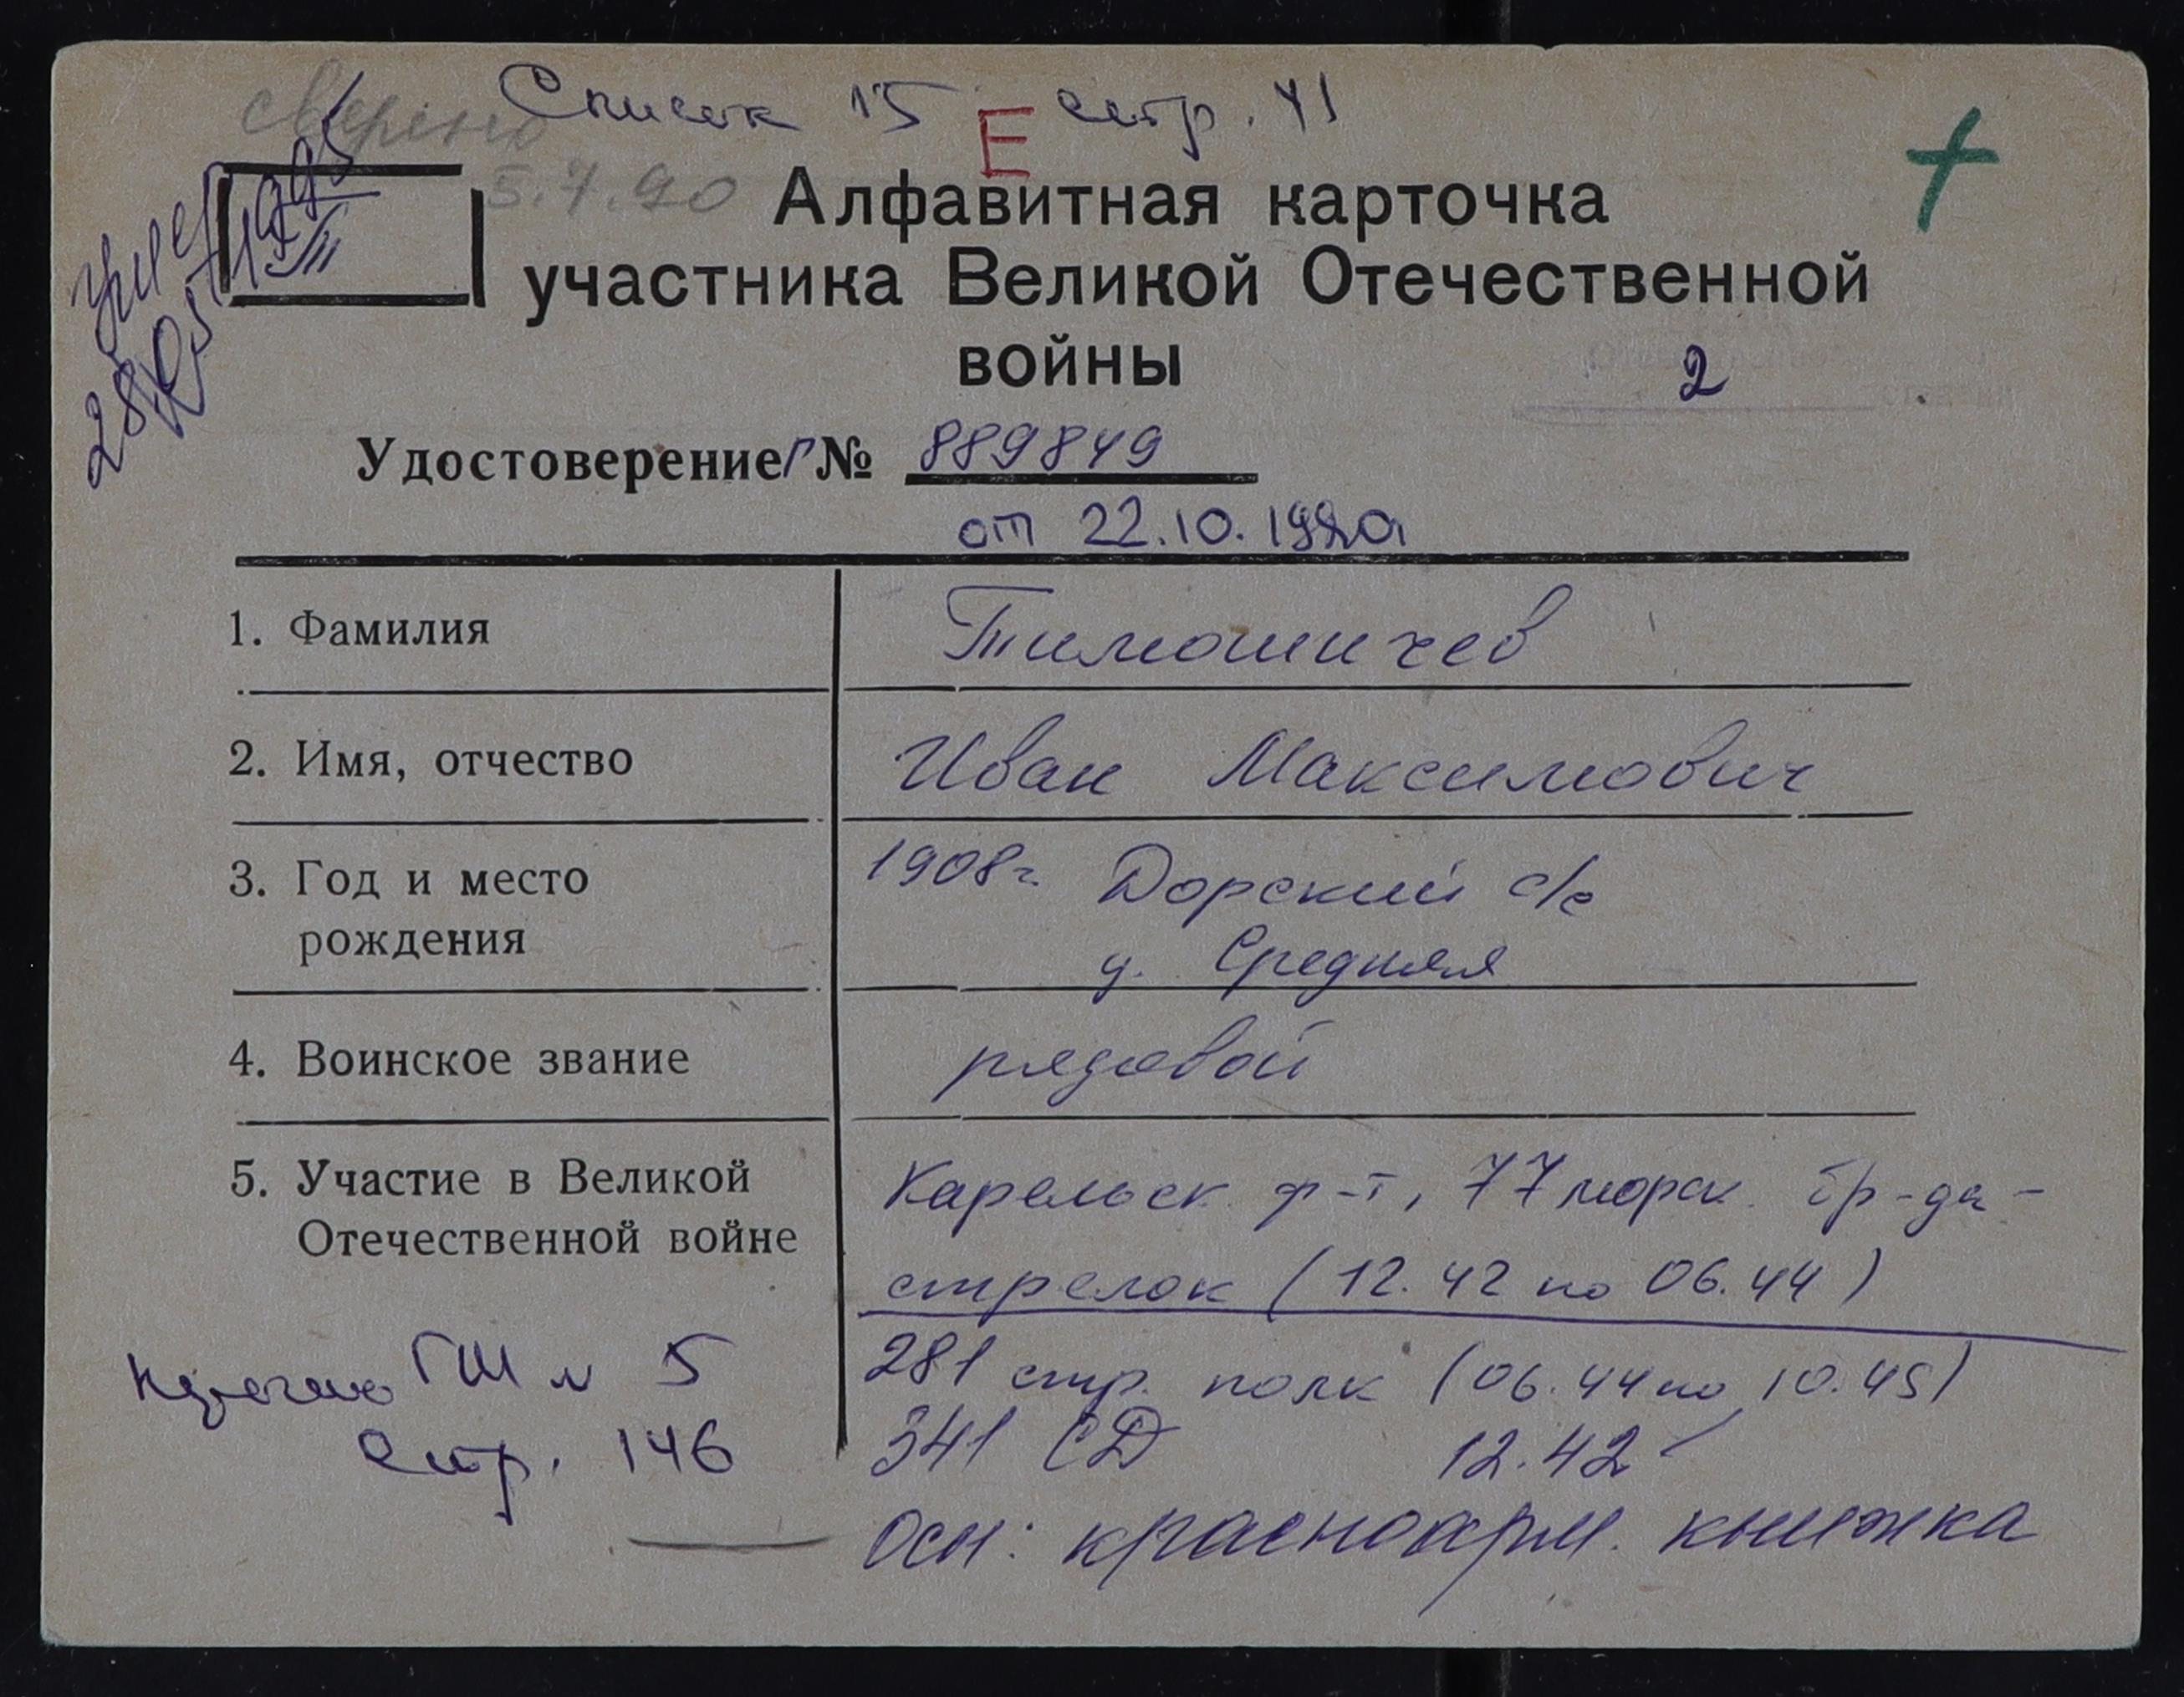 Список 15 стр. 41
сверено
5.7.90
Е
умер
28/05 1995
III
Алфавитная карточка
участника Великой Отечественной
войны
2
Удостоверение Г № 889849
от 22.10.1980
1. Фамилия Тимошичев
2. Имя, отчество Иван Максимович
3. Год и место 1908г. Дорский с/с
рождения д. Средняя
4. Воинское звание рядовой
5. Участие в Великой Карельск. ф-т, 77 морск. бр-да-
Отечественной войне стрелок (12.42 по 06.44)
281 стр. полк (06.44 по 10.45)
ГШ № 5
341 СД 12.42
стр. 146
Осн: красноарм. книжка